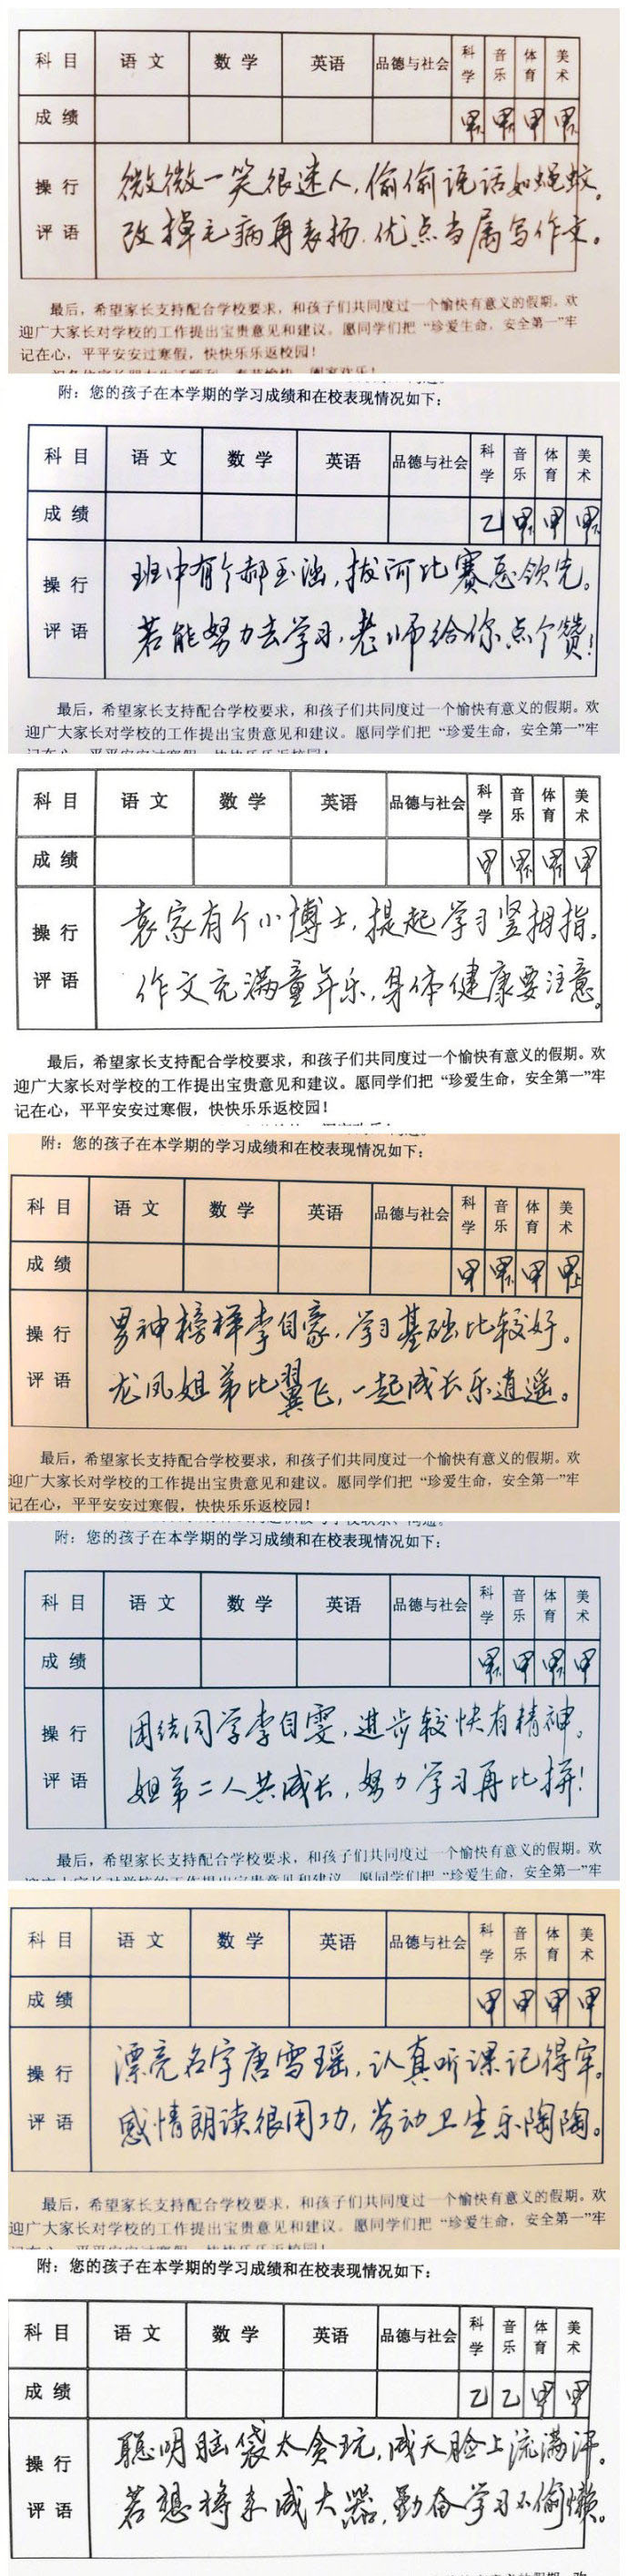 科目 语文 数学 英语 品德与社会 科学 音乐 体育 美术
成绩 甲 甲 甲 甲
操行评语
微微一笑很迷人,偷偷说话如蝇蚊。
改掉毛病再表扬.优点当属写作文。
最后,希望家长支持配合学校要求,和孩子们共同度过一个愉快有意义的假期。欢
迎广大家长对学校的工作提出宝贵意见和建议。愿同学们把“珍爱生命,安全第一”牢
记在心,平平安安过寒假,快快乐乐返校园!
附:您的孩子在本学期的学习成绩和在校表现情况如下:
科目 语文 数学 英语 品德与社会 科学 音乐 体育 美术
成绩 乙 甲 甲 甲
操行评语
班中有个郝玉涵,拔河比赛总领先。
若能努力去学习,老师给你点个赞!
最后,希望家长支持配合学校要求,和孩子们共同度过一个愉快有意义的假期。欢
迎广大家长对学校的工作提出宝贵意见和建议。愿同学们把“珍爱生命,安全第一”牢
科目 语文 数学 英语 品德与社会 科学 音乐 体育 美术
成绩 甲 甲 甲 甲
操行评语
袁家有个小博士,提起学习竖拇指。
作文充满童年乐,身体健康要注意。
最后,希望家长支持配合学校要求,和孩子们共同度过一个愉快有意义的假期。欢
迎广大家长对学校的工作提出宝贵意见和建议。愿同学们把“珍爱生命,安全第一”牢
记在心,平平安安过寒假,快快乐乐返校园!
附:您的孩子在本学期的学习成绩和在校表现情况如下:
科目 语文 数学 英语 品德与社会 科学 音乐 体育 美术
成绩 甲 甲 甲 甲上
操行评语
男神榜样李自豪,学习基础比较好。
龙凤姐弟比翼飞,一起成长乐逍遥。
最后,希望家长支持配合学校要求,和孩子们共同度过一个愉快有意义的假期。欢
迎广大家长对学校的工作提出宝贵意见和建议。愿同学们把“珍爱生命,安全第一”牢
记在心,平平安安过寒假,快快乐乐返校园!
附:您的孩子在本学期的学习成绩和在校表现情况如下:
科目 语文 数学 英语 品德与社会 科学 音乐 体育 美术
成绩 甲 甲 甲 甲
操行评语
团结同学李自雯,进步较快有精神。
姐弟二人共成长,努力学习再比拼!
最后,希望家长支持配合学校要求,和孩子们共同度过一个愉快有意义的假期。欢
科目 语文 数学 英语 品德与社会 科学 音乐 体育 美术
成绩 甲 甲 甲 甲
操行评语
漂亮名字唐雪瑶,认真听课记得牢。
感情朗读很用功,劳动卫生乐陶陶。
最后,希望家长支持配合学校要求,和孩子们共同度过一个愉快有意义的假期。欢
迎广大家长对学校的工作提出宝贵意见和建议。愿同学们把“珍爱生命,安全第一”牢
附:您的孩子在本学期的学习成绩和在校表现情况如下:
科目 语文 数学 英语 品德与社会 科学 音乐 体育 美术
成绩 乙 乙 甲 甲
操行评语
聪明脑袋太贪玩,成天脸上流满汗。
若想将来成大器,勤奋学习不偷懒。